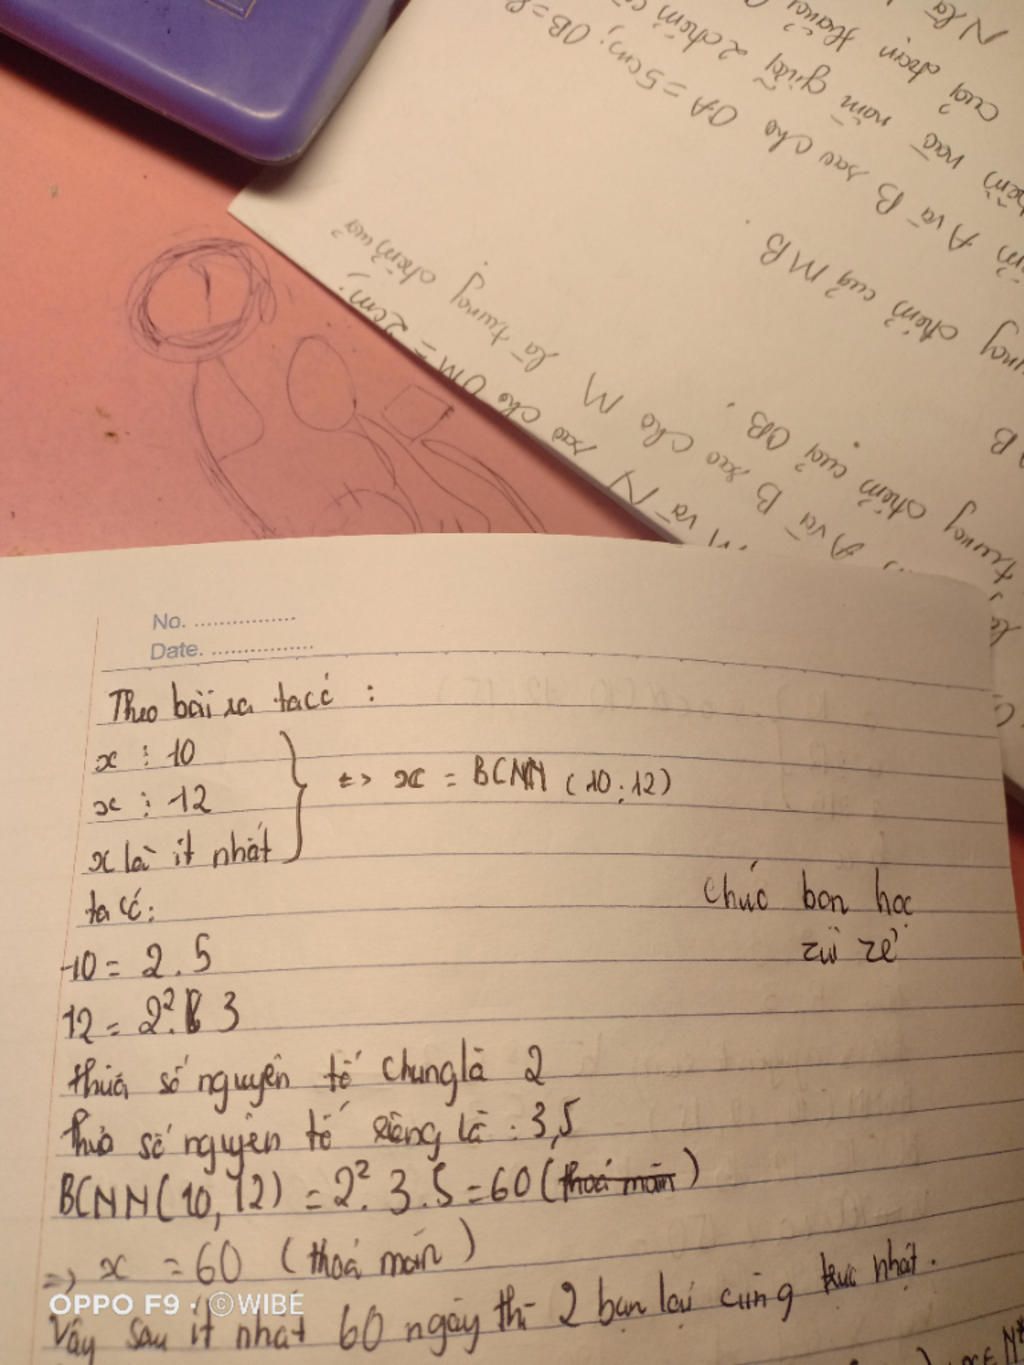 No. ................
Date. ................
Theo bài ra ta có :
x ⋮ 10
x ⋮ 12
x là ít nhất
<=> x = BCNN (10;12)
ta có:
10 = 2.5
12 = 2². 3
thừa số nguyên tố chung là 2
thừa số nguyên tố riêng là : 3,5
BCNN(10,12) = 2². 3.5 = 60 (thoả mãn)
=> x = 60 (thoả mãn)
Vậy sau ít nhất 60 ngày thì 2 bạn lại cùng trực nhật.
Chúc bạn học
zui zẻ
OPPO F9 · ©WIBE
x ∈ N*
N là
của đoạn thẳng
nào nằm giữa 2 điểm
A và B sao cho OA = 5cm; OB =
điểm của MB
B
trung điểm của OB.
A và B sao cho M là trung điểm của
M và N sao cho OM = 2cm;